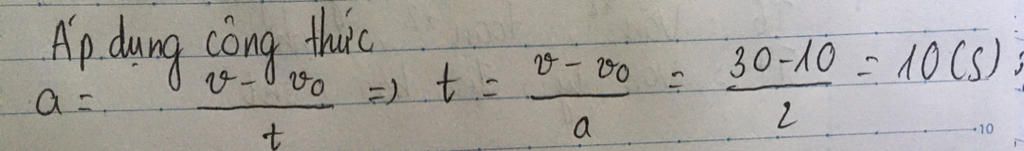 Áp dụng công thức
a = \frac{v - v_0}{t} => t = \frac{v - v_0}{a} = \frac{30 - 10}{2} = 10 (s)
10